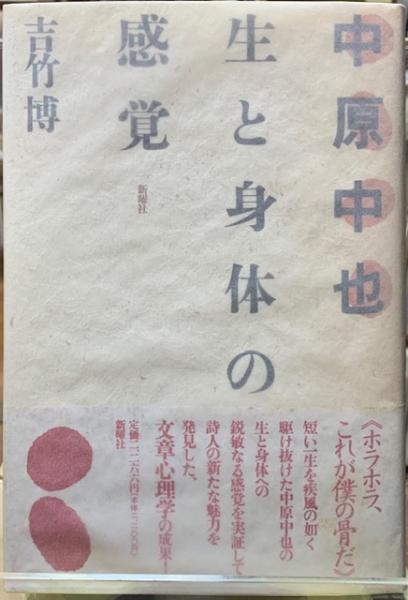 中原中也
生と身体の
感覚
吉竹博
新曜社
《ホラホラ、
これが僕の骨だ》
短い一生を疾風の如く
駆け抜けた中原中也の
生と身体への
鋭敏なる感覚を実証して
詩人の新たな魅力を
発見した、
文章心理学の成果！
定価二二六六円(本体二、二〇〇円)
新曜社